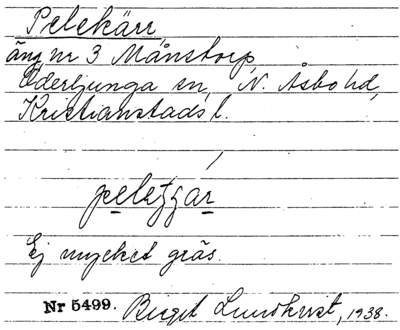 Pelekärr
äng nr 3 Månstorp
Oderljunga sn, N. Åsbo hd,
Kristianstads l.
Ej mycket gräs.
Nr 5499. Birgit Lundkvist, 1938.